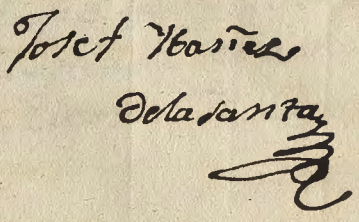 Josef Ybañez
delasanta